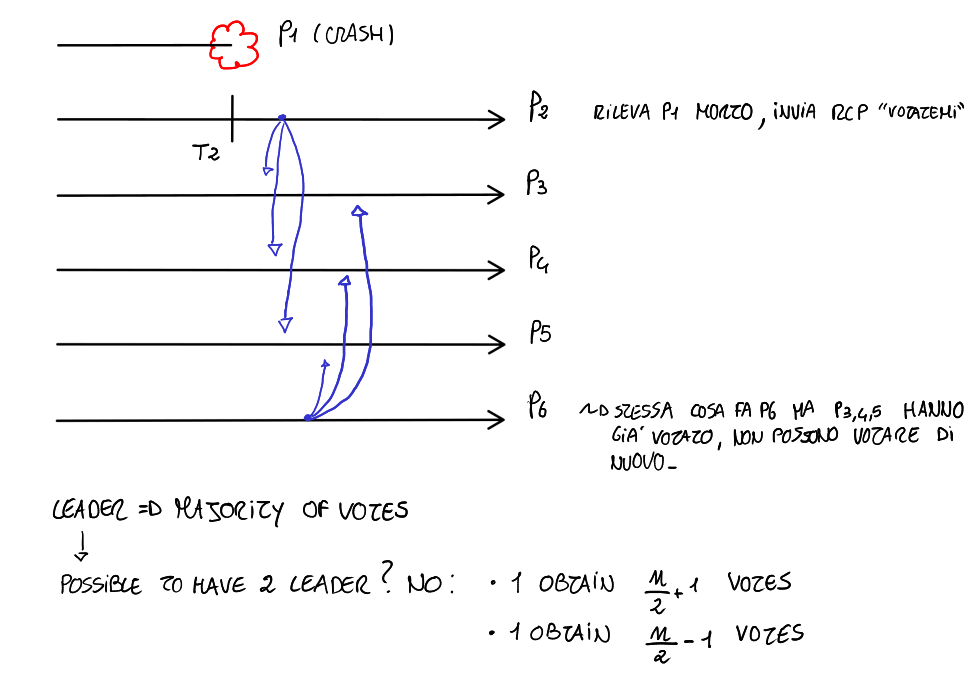 P1 (CRASH)
P2 RILEVA P1 MORTO, INVIA RCP "VOTATEMI"
T2
P3
P4
P5
P6 ~D STESSA COSA FA P6 MA P3,4,5 HANNO
GIA' VOTATO, NON POSSONO VOTARE DI
NUOVO_
LEADER =D MAJORITY OF VOTES
POSSIBLE TO HAVE 2 LEADER? NO: • 1 OBTAIN n/2 + 1 VOTES
• 1 OBTAIN n/2 - 1 VOTES